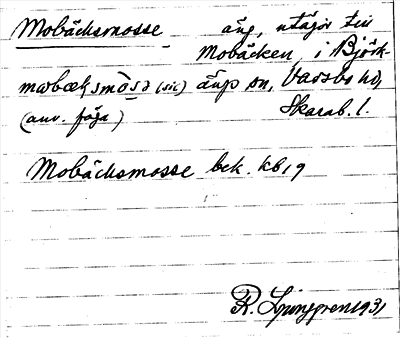 Mobäcksmosse äng, utägor till
Mobäcken, i Björk-
mωbæk̨smòsa (sic) ängs sn, Vadsbo hd,
(anv. föga) Skarab. l.
Mobäcksmosse bek. kb, 9
R. Ljunggren 1931